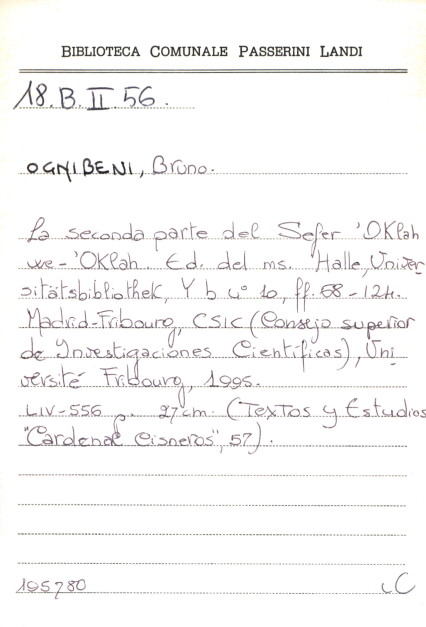 BIBLIOTECA COMUNALE PASSERINI LANDI
18. B. II. 56.
OGNIBENI, Bruno.
La seconda parte del Sefer 'OKlah
we-'OKlah. Ed. del ms. Halle, Univer
sitätsbibliothek, Y b 4° 10, ff. 68-124.
Madrid-Fribourg, CSIC (Consejo superior
de Investigaciones Científicas), Uni
versité Fribourg, 1995.
LIV-556 p. 27 cm. (Textos y Estudios
"Cardenal Cisneros", 57).
195780